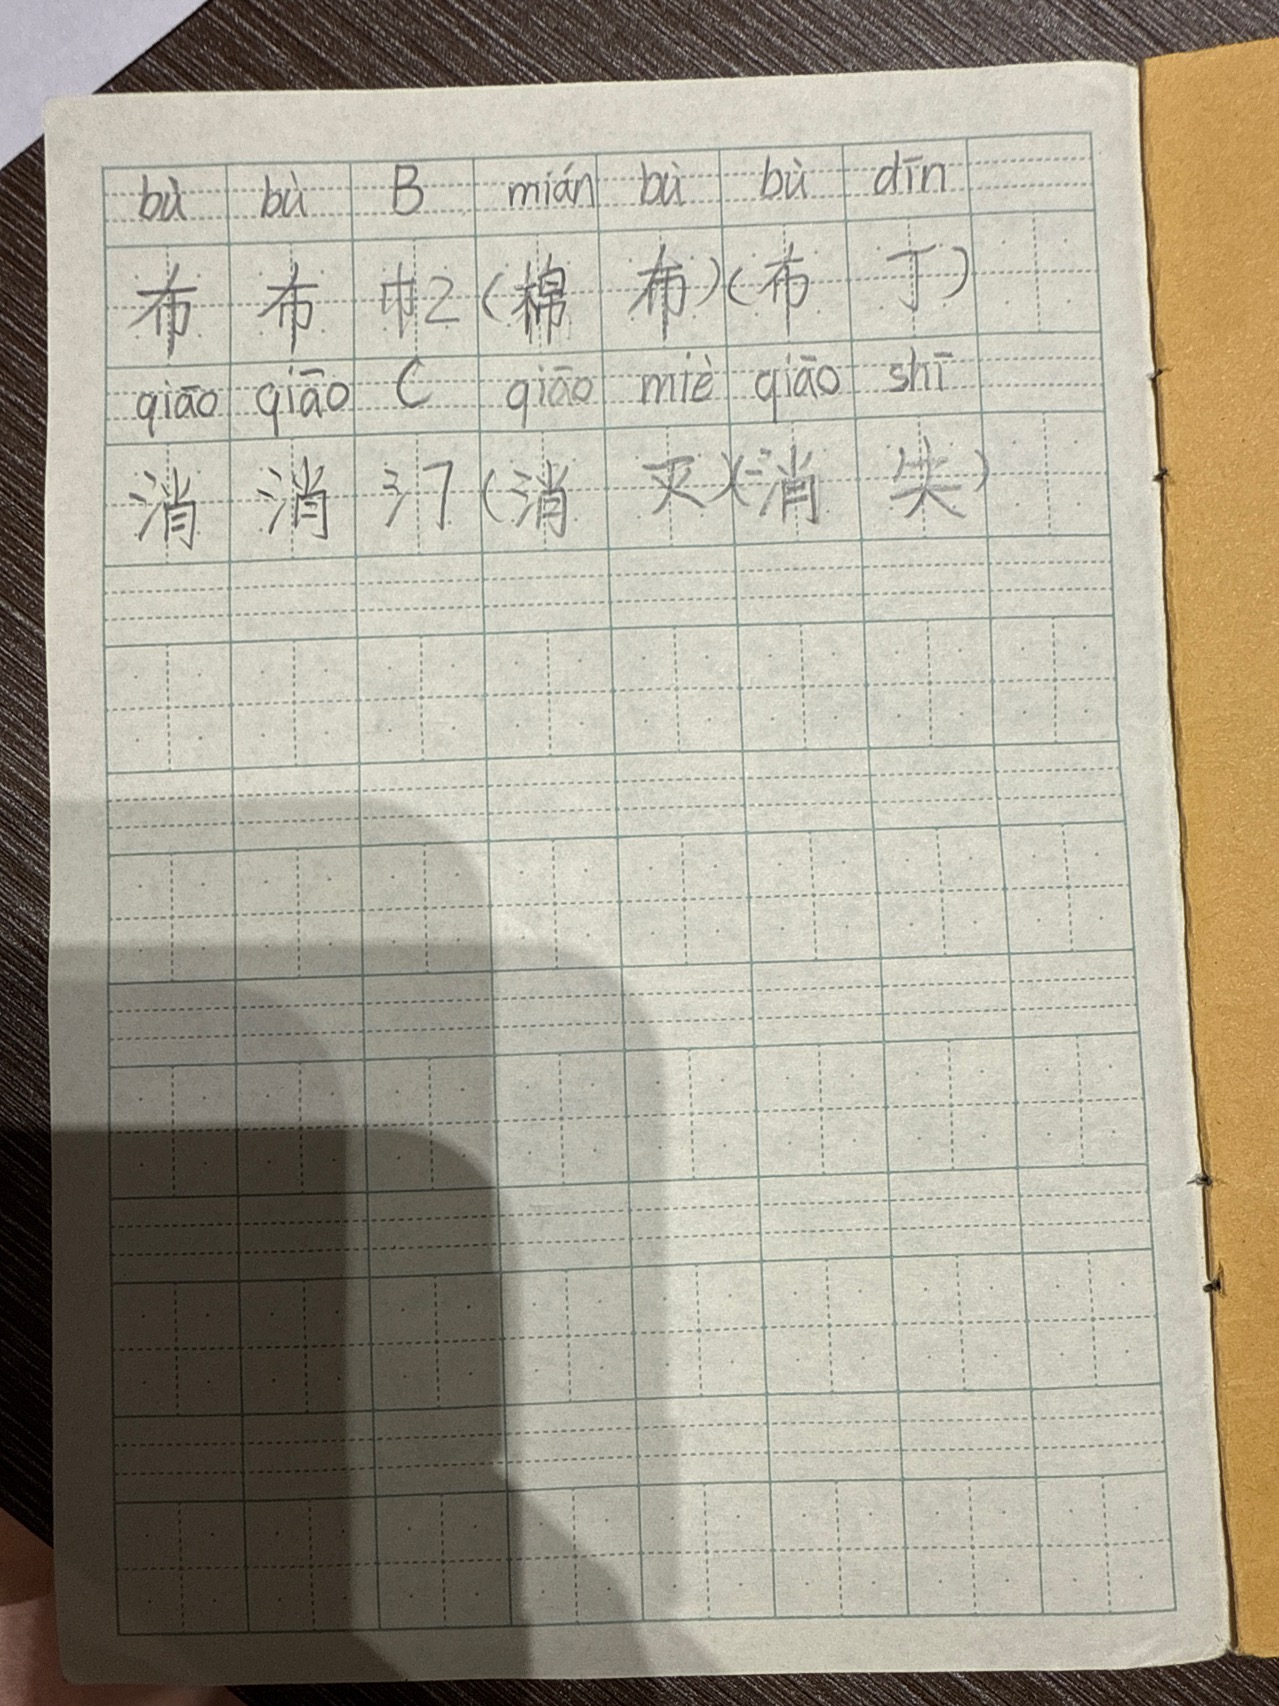 bù bù B mián bù bù dīn
布 布 巾2 (棉 布)(布 丁)
qiāo qiāo C qiāo miè qiāo shī
消 消 氵7 (消 灭)(消 失)